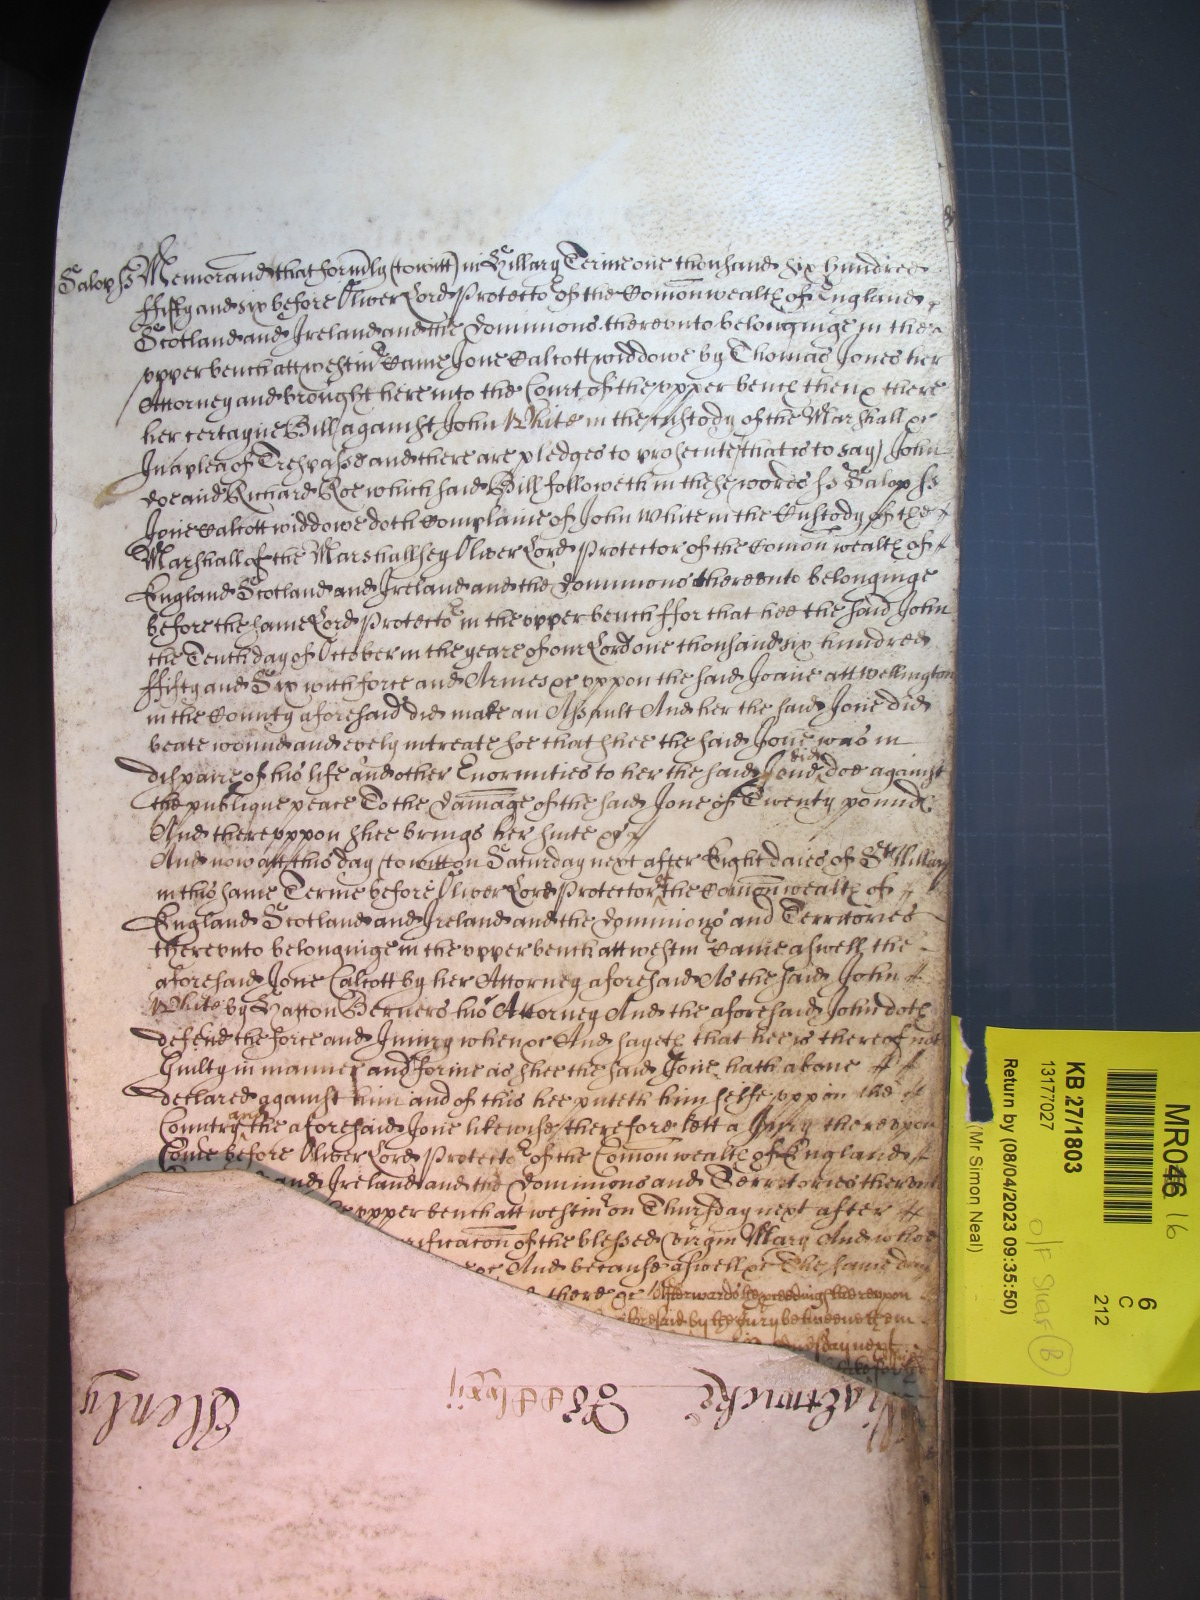 Salop ss Memorand that form̃ly (towitt) in Hillary Terme one thousand six hundred
ffifty and six before Oliver Lord Protector of the Com̃onwealth of England
Scotland and Ireland and the Dominions thereunto belonginge in the
upper bench att westm̃ Came Jone Calcott widdowe by Thomas Jones her
Attorney and brought here into the Court of the upper bench then & there
her certayne Bill against John White in the custody of the Marshall &c
In a plea of Trespasse and there are pledges to prosecute (that is to say) John
doe and Richard Roe which said Bill followeth in these wordes ss Salop ss
Jone Calcott widdowe doth Complaine of John White in the Custody of the
Marshall of the Marshallsey Oliver Lord Protector of the Com̃on wealth of
England Scotland and Ireland and the Dominions thereunto belonginge
before the same Lord Protector in the upper bench ffor that hee the said John
the Tenth day of October in the yeare of our Lord one thousand six hundred
ffifty and Six with force and Armes &c uppon the said Joane att Wellington
in the County aforesaid did make an Assault And her the said Jone did
beate wound and evely intreate soe that shee the said Jone was in
dispaire of his life and other Enormities to her the said Jone did doe against
the publique peace To the dam̃age of the said Jone of Twenty pound
And thereuppon shee brings her suite &c
And now att this day (towitt on Saturday next after Eight daies of St Hillary
in this same Terme before Oliver Lord Protector of the Com̃onwealth of
England Scotland and Ireland and the Dominions and Territories
thereunto belonginge in the upper bench att westm̃ Came aswell the
aforesaid Jone Calcott by her Attorney aforesaid As the said John
White by Hatton Berners his Attorney And the aforesaid John doth
defend the force and Iniury when &c And sayeth that hee is thereof not
Guilty in manner and forme as shee the said Jone hath above
declared against him and of this hee puteth himselfe uppon the
Country and the aforesaid Jone likewise therefore lett a Jury thereupon
Come before Oliver Lord Protector of the Com̃onwealth of England
and Ireland and the Dominions and Territories thereunto
upper bench att westm̃ on Thursday next after
rificac̃on of the blessed virgin Mary And who
&c And because aswell &c The same day
there &c Afterwards the proceedings thereupon
aforesaid by the Jury betweene them
next
Henly
MR046 16
KB 27/1803
13177027
Return by (08/04/2023 09:35:50)
(Mr Simon Neal)
6
C
212
O/F Shelf B